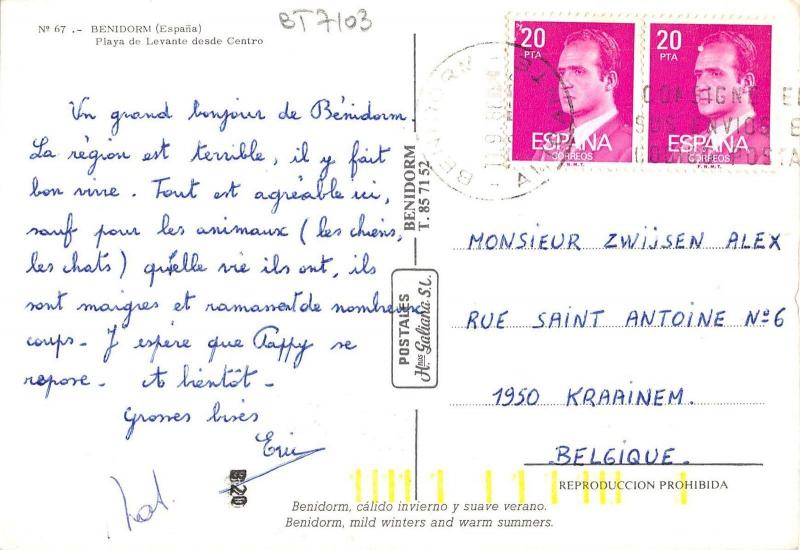 Nº 67 .- BENIDORM (España)
Playa de Levante desde Centro
BT7103
20
PTA
ESPAÑA
CORREOS
F.N.M.T.
20
PTA
ESPAÑA
CORREOS
F.N.M.T.
BENIDORM
CONSIGNE E
SUS ENVIOS E
Un grand bonjour de Bénidorm.
La région est terrible, il y fait
bon vivre. Tout est agréable ici,
sauf pour les animaux (les chiens,
les chats) quelle vie ils ont, ils
sont maigres et ramassent de nombreux
coups. J'espère que Pappy se
repose. A bientôt.
Grosses bises
Eric
BENIDORM
T. 85 71 52
POSTALES
Hnos Galiana S.L.
MONSIEUR ZWIJSEN ALEX
RUE SAINT ANTOINE Nº6
1950 KRAAINEM.
BELGIQUE.
REPRODUCCION PROHIBIDA
B20
Benidorm, cálido invierno y suave verano.
Benidorm, mild winters and warm summers.